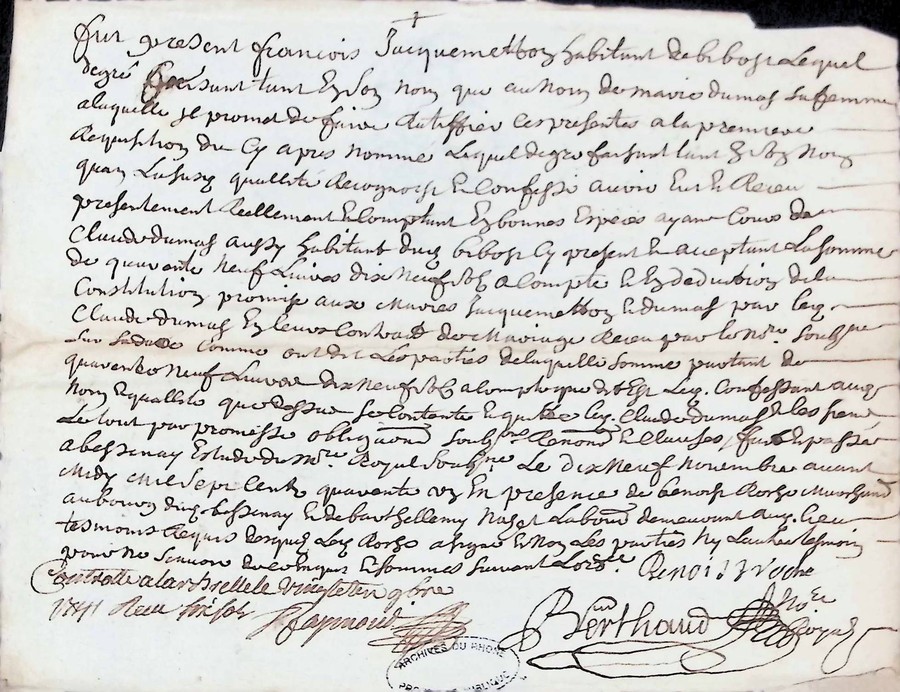 fut present francois Jacquemetton habitant de bibost Lequel
degré faisant tant En son nom que au nom de marie dumas sa femme
a laquelle Il promet de faire Ratiffier ces presentes a la premiere
Requisition du Cy apres nommé Lequel degré faisant tant En son nom
quen La susd quallité Recognoist Et Confesse avoir Eut Et Receu
presentement Reellement Et Comptant En bonnes Especes ayant Cours de
Claude dumas aussy habitant dud bibost Cy present Et acceptant La somme
de quarente Neuf Livres dix Neuf sols a Compte Et En deduction de la
Constitution promise aux Mariés Jacquemetton Et dumas par Led
Claude dumas En Leur Contrat de Mariage Receu par le no.re soubs.né
sur sa datte Comme ont dit Les parties de laquelle somme portant de
quarente Neuf Livres dix Neuf sols a compte que dit Est Led. Confessant auxd
Nom Et quallité que dessus se Contente Et quitte Led. Claude dumas
Le tout par promesse obligaons soubs.ons Renons Et Clauses, fait Et passé
a bessenay Estude du no.re Royal soubs.né Le dix Neuf Novembre avant
Midy Mil sept Cents quarente un En presence de benoist Roche Marchand
au bourg dud. bessenay Et de barthellemy Labour demeurant aud. Lieu
tesmoins Requis desquels Led Roche a signé Et Non Les parties Ny Lautre tesmoin
pour ne scavoir de ce Enquis Et sommés suivant Lord.ce
Benoist roche
Controllé a larbrelle le vingt et un 9bre
1741 Receu six sols Raymond
Berthaud No.re Royal
ARCHIVES DU RHONE